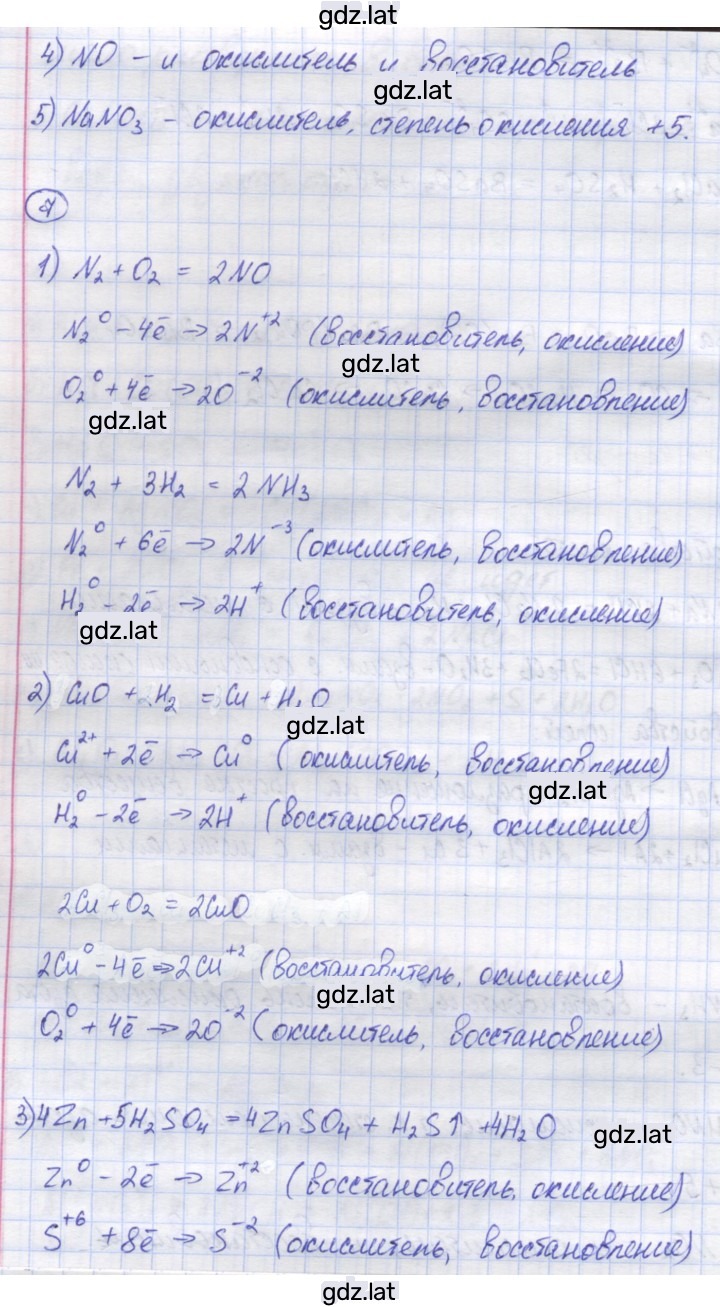 gdz.lat
4) NO – и окислитель и восстановитель
gdz.lat
5) NaNO₃ – окислитель, степень окисления +5.
7
1) N₂ + O₂ = 2NO
N₂⁰ – 4ē → 2N⁺² (восстановитель, окисление)
gdz.lat
O₂⁰ + 4ē → 2O⁻² (окислитель, восстановление)
gdz.lat
N₂ + 3H₂ = 2NH₃
N₂⁰ + 6ē → 2N⁻³ (окислитель, восстановление)
H₂⁰ – 2ē → 2H⁺ (восстановитель, окисление)
gdz.lat
2) CuO + H₂ = Cu + H₂O
gdz.lat
Cu²⁺ + 2ē → Cu⁰ (окислитель, восстановление)
gdz.lat
H₂⁰ – 2ē → 2H⁺ (восстановитель, окисление)
2Cu + O₂ = 2CuO
2Cu⁰ – 4ē → 2Cu⁺² (восстановитель, окисление)
gdz.lat
O₂⁰ + 4ē → 2O⁻² (окислитель, восстановление)
3) 4Zn + 5H₂SO₄ = 4ZnSO₄ + H₂S↑ + 4H₂O
gdz.lat
Zn⁰ – 2ē → Zn⁺² (восстановитель, окисление)
S⁺⁶ + 8ē → S⁻² (окислитель, восстановление)
gdz.lat